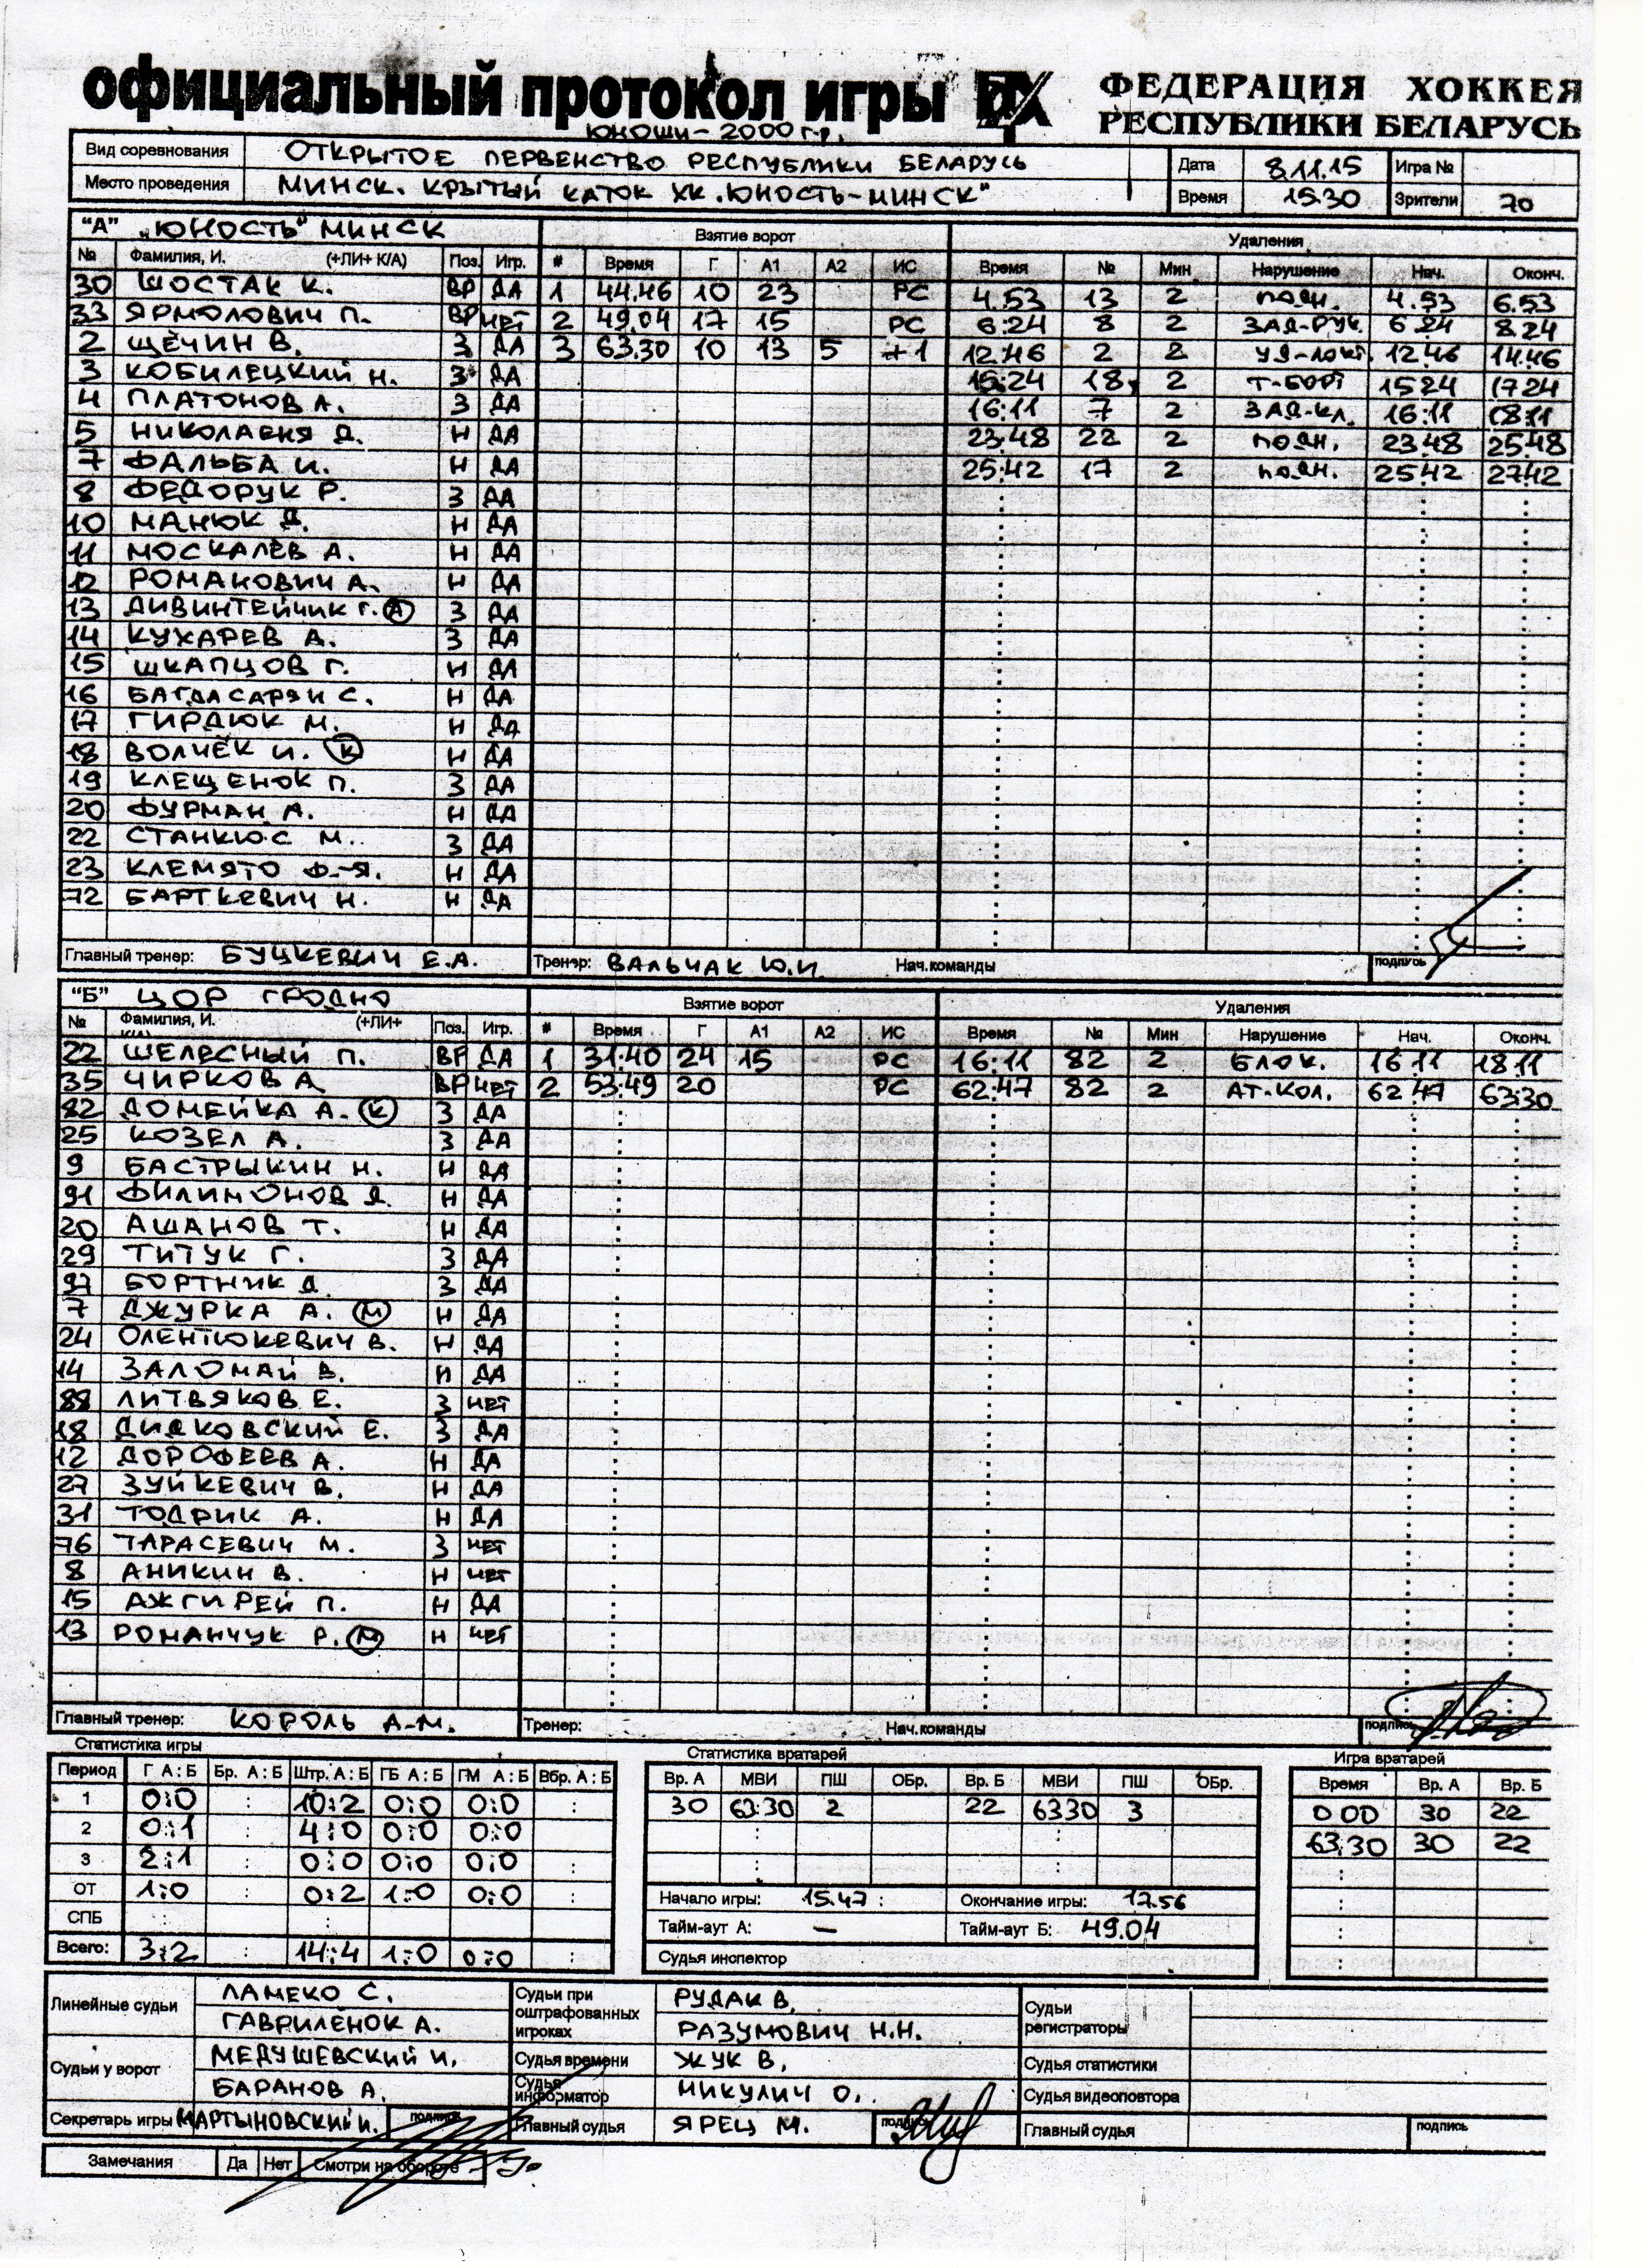 официальный протокол игры
ФЕДЕРАЦИЯ ХОККЕЯ
РЕСПУБЛИКИ БЕЛАРУСЬ
ЮНОШИ - 2000 г.р.
Вид соревнования ОТКРЫТОЕ ПЕРВЕНСТВО РЕСПУБЛИКИ БЕЛАРУСЬ Дата 8.11.15 Игра №
Место проведения МИНСК. КРЫТЫЙ КАТОК ХК "ЮНОСТЬ-МИНСК" Время 15.30 Зрители 70
"А" "ЮНОСТЬ" МИНСК Взятие ворот Удаления
№ Фамилия, И. (+ЛИ+ К/А) Поз. Игр. # Время Г А1 А2 ИС Время № Мин Нарушение Нач. Оконч.
30 ШОСТАК К. ВР ДА 1 44.46 10 23 РС 4.53 13 2 подн. 4.53 6.53
33 ЯРМОЛОВИЧ П. ВР НЕТ 2 49.04 17 15 РС 6:24 8 2 ЗАД-РУК. 6 24 8.24
2 ЩЁЧИН В. З ДА 3 63.30 10 13 5 +1 12:46 2 2 УД-ЛОКТ. 12.46 14.46
3 КОБИЛЕЦКИЙ Н. З ДА 15:24 18 2 Т-БОРТ 15 24 17 24
4 ПЛАТОНОВ А. З ДА 16:11 7 2 ЗАД-КЛ. 16:11 18:11
5 НИКОЛАЕНЯ Д. Н ДА 23:48 22 2 подн. 23.48 25.48
7 ФАЛЬБА И. Н ДА 25:42 17 2 подн. 25:42 27.42
8 ФЕДОРУК Р. З ДА
10 МАНЮК Д. Н ДА
11 МОСКАЛЁВ А. Н ДА
12 РОМАНОВИЧ А. Н ДА
13 ДИВИНТЕЙЧИК Г. А З ДА
14 КУХАРЕВ А. З ДА
15 ШКАПЦОВ Г. Н ДА
16 БАГДАСАРЯН С. Н ДА
17 ГИРДЮК М. Н ДА
18 ВОЛЧЁК И. К Н ДА
19 КЛЕЩЕНОК П. З ДА
20 ФУРМАН А. Н ДА
22 СТАНКЮС М. З ДА
23 КЛЕМЯТО Ф.-Я. Н ДА
72 БАРТКЕВИЧ Н. Н ДА
Главный тренер: БУЦКЕВИЧ Е.А. Тренер: ВАЛЬЧАК Ю.И. Нач.команды подпись
"Б" ЦОР ГРОДНО Взятие ворот Удаления
№ Фамилия, И. (+ЛИ+ К/А) Поз. Игр. # Время Г А1 А2 ИС Время № Мин Нарушение Нач. Оконч.
22 ШЕЛЕСНЫЙ П. ВР ДА 1 31:40 24 15 РС 16:11 82 2 БЛОК. 16 11 18.11
35 ЧИРКОВ А ВР НЕТ 2 53:49 20 РС 62:47 82 2 АТ-КОЛ. 62 47 63:30
82 ДОМЕЙКА А. К З ДА
25 КОЗЕЛ А. З ДА
9 БАСТРЫКИН Н. Н ДА
91 ФИЛИМОНОВ Д. Н ДА
20 АШАНОВ Т. Н ДА
29 ТИТУК Г. З ДА
97 БОРТНИК Д. З ДА
7 ДЖУРКА А. М Н ДА
24 ОЛЕНТЮКЕВИЧ В. Н ДА
14 ЗАЛОМАЙ В. Н ДА
88 ЛИТВЯКОВ Е. З НЕТ
18 ДИДКОВСКИЙ Е. З ДА
12 ДОРОФЕЕВ А. Н ДА
27 ЗУЙКЕВИЧ В. Н ДА
31 ТОДРИК А. Н ДА
76 ТАРАСЕВИЧ М. З НЕТ
8 АНИКИН В. Н НЕТ
15 АЖГИРЕЙ П. Н ДА
13 РОМАНЧУК Р. М Н НЕТ
Главный тренер: КОРОЛЬ А.М. Тренер: Нач.команды подпись
Статистика игры Статистика вратарей Игра вратарей
Период Г А:Б Бр. А:Б Штр. А:Б ГБ А:Б ГМ А:Б Вбр. А:Б Вр. А МВИ ПШ ОБр. Вр. Б МВИ ПШ ОБр. Время Вр. А Вр. Б
1 0:0 : 10:2 0:0 0:0 : 30 63:30 2 22 63 30 3 0 00 30 22
2 0:1 : 4:0 0:0 0:0 63:30 30 22
3 2:1 : 0:0 0:0 0:0 :
ОТ 1:0 : 0:2 1:0 0:0 : Начало игры: 15.47 Окончание игры: 17.56
СПБ : : Тайм-аут А: — Тайм-аут Б: 49.04
Всего: 3:2 : 14:4 1:0 0:0 : Судья инспектор
Линейные судьи ЛАМЕКО С. Судьи при оштрафованных игроках РУДАК В. Судьи регистраторы
ГАВРИЛЁНОК А. РАЗУМОВИЧ Н.Н.
Судьи у ворот МЕДУШЕВСКИЙ И. Судья времени ЖУК В. Судья статистики
БАРАНОВ А. Судья информатор НИКУЛИЧ О. Судья видеоповтора
Секретарь игры МАРТЫНОВСКИЙ И. подпись Главный судья ЯРЕЦ М. подпись Главный судья подпись
Замечания Да Нет Смотри на обороте